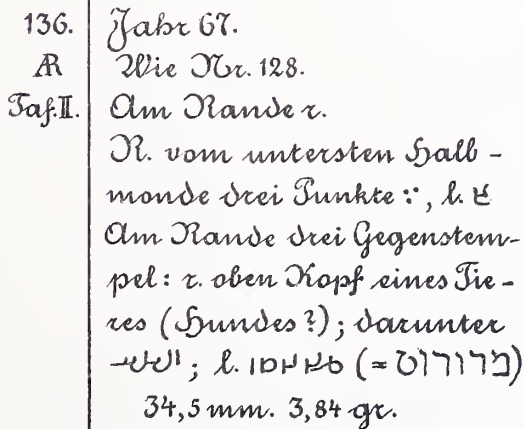 136. Jahr 67.
AR Wie Nr. 128.
Taf. II. Am Rande r.
R. vom untersten Halb-
monde drei Punkte ·:, l.
Am Rande drei Gegenstem-
pel: r. oben Kopf eines Tie-
res (Hundes?); darunter
; l. (= מרורוט)
34,5 mm. 3,84 gr.